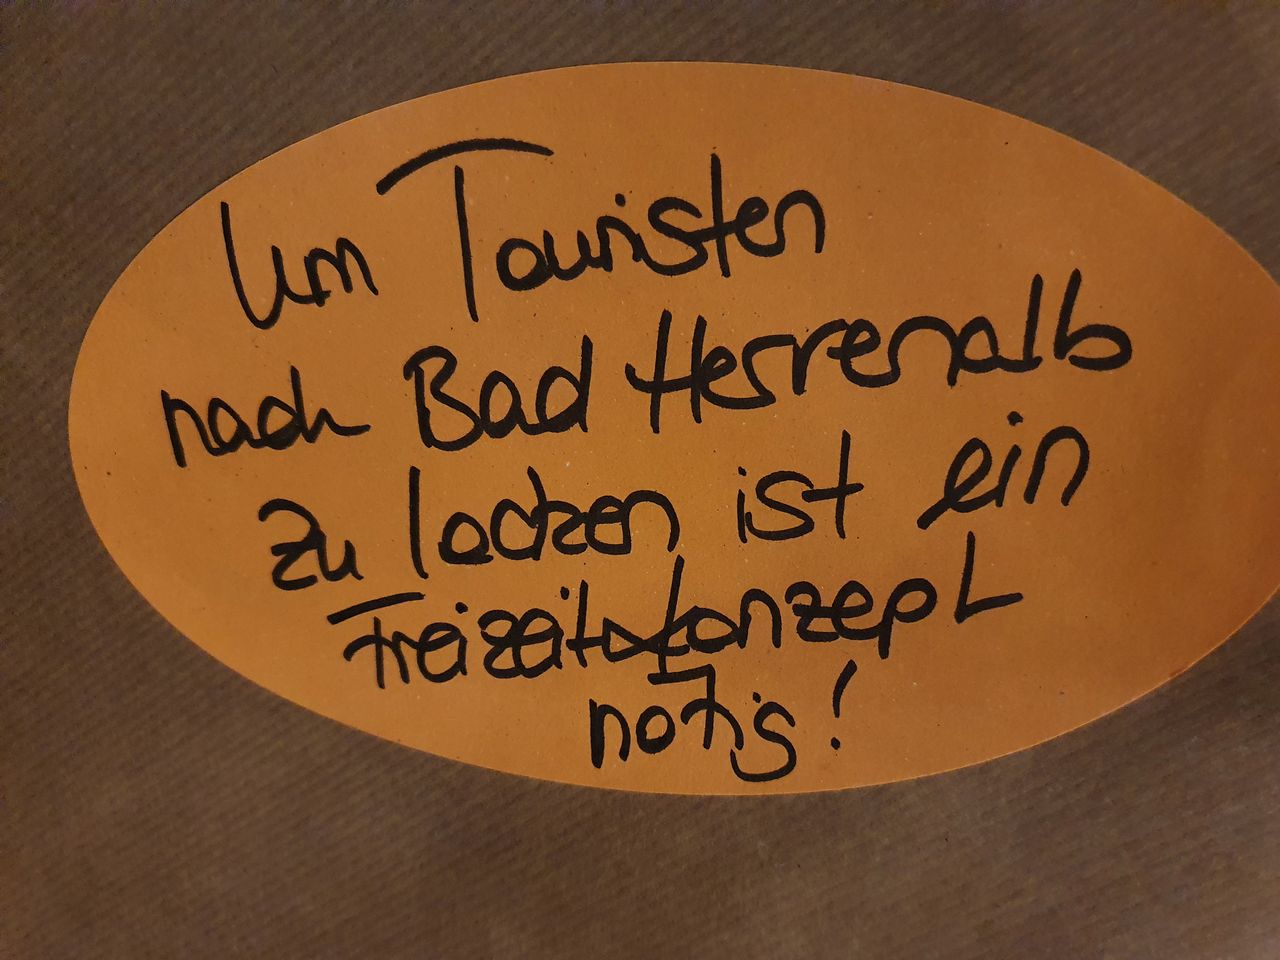 Um Touristen
nach Bad Herrenalb
zu locken ist ein
Freizeitkonzept
notig!